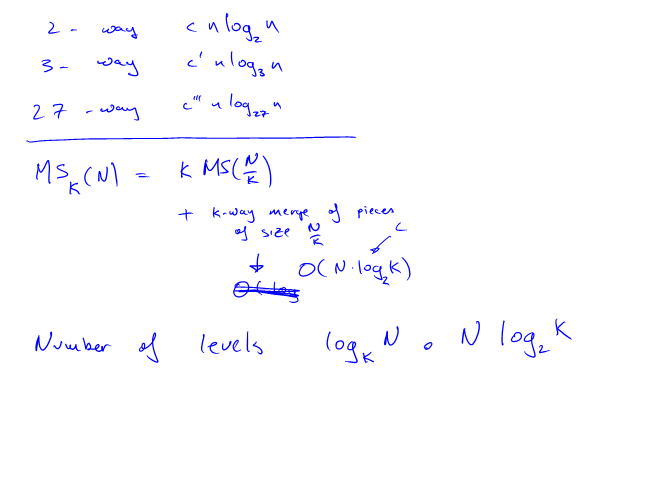 2 - way c n log₂ n
3 - way c' n log₃ n
27 - way c''' n log₂₇ n
MS_K(N) = K MS(N/K)
+ k-way merge of pieces
of size N/K C
↓ O(N·log₂K)
O(log
Number of levels log_K N • N log₂ K